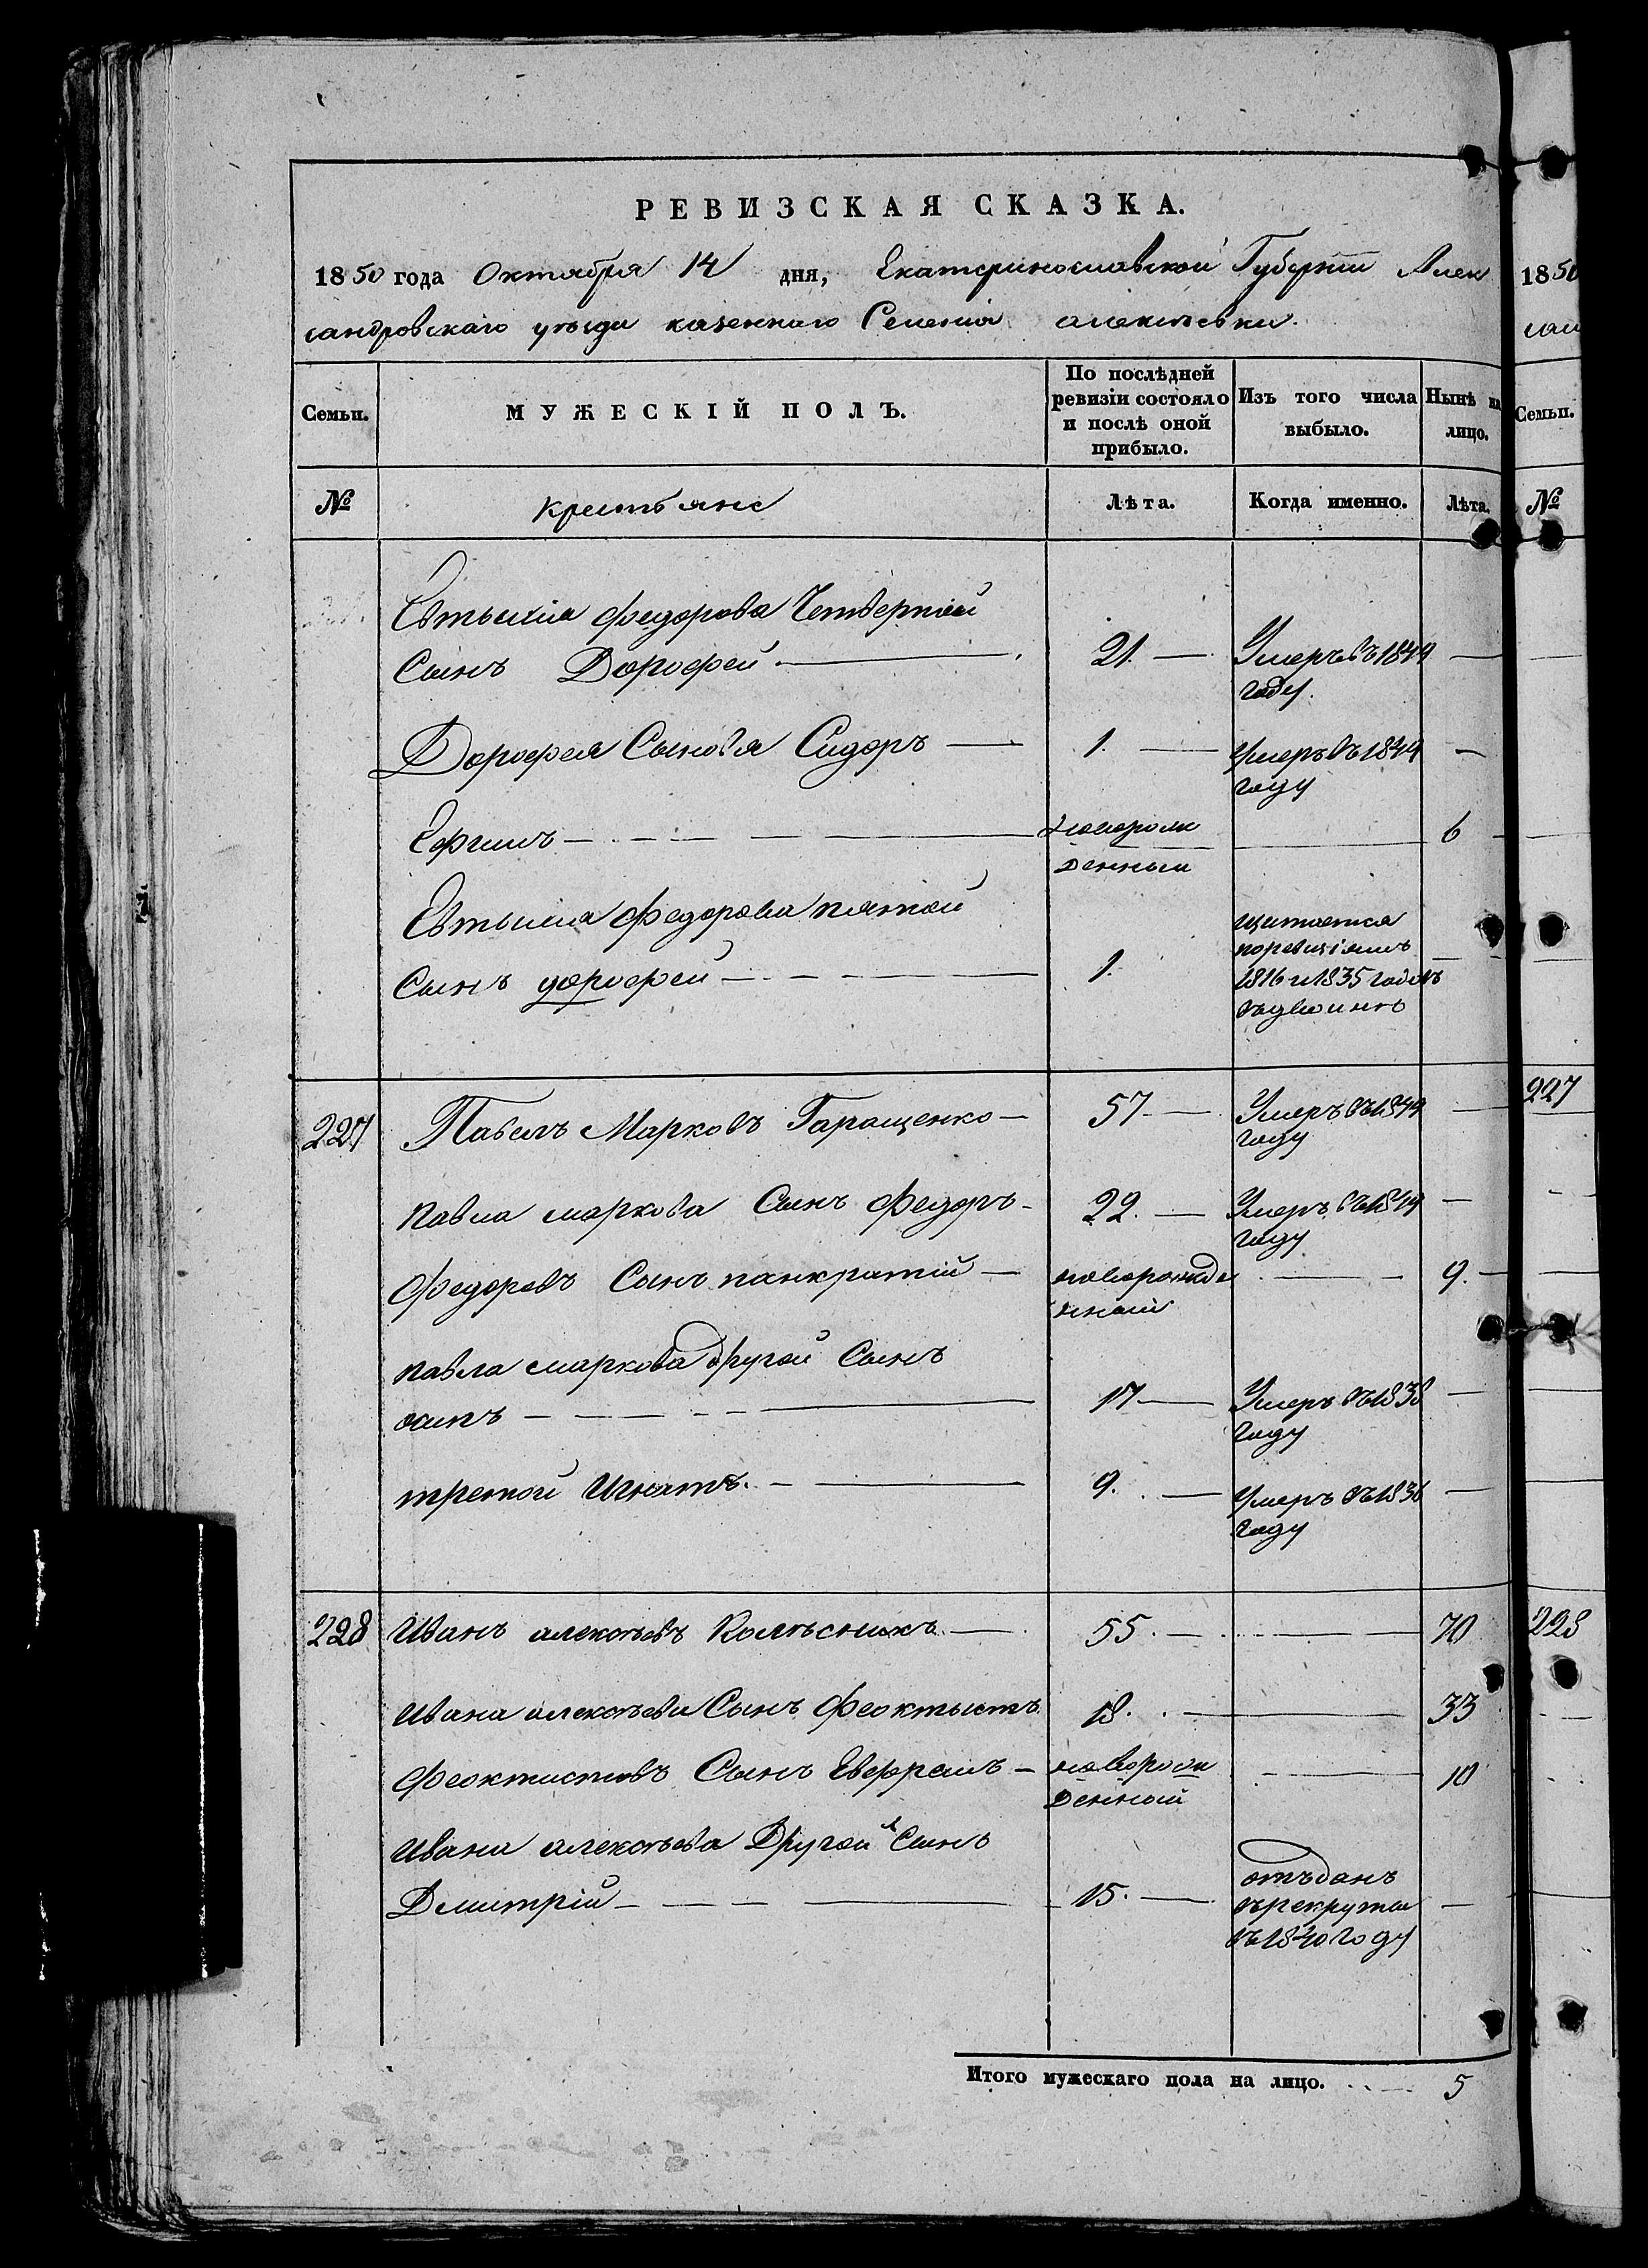 РЕВИЗСКАЯ СКАЗКА.
1850 года Октября 14 дня, Екатеринославской Губернии Алек
сандровскаго уѣзда казеннаго Селенія алексѣевки.
Семьи.
МУЖЕСКІЙ ПОЛЪ.
По послѣдней ревизіи состояло и послѣ оной прибыло.
Изъ того числа выбыло.
Нынѣ на лицо.
№
крестьяне
Лѣта.
Когда именно.
Лѣта.
Евтыхия федорова Четвертый
Сынъ Дорофей 21. Умеръ въ 1849
году.
Дорофея Сыновя Сидоръ 1. умеръ въ 1844
году
Ефимъ новорож
денный 6
Евтыхия федорова пятой
Сынъ дорофей 1. щитается
поревизіямъ
1816 и 1835 годовъ
въдвоинѣ
227 Павелъ Марковъ Гаращенко 57 Умеръ въ 1849
году
павла маркова Сынъ Федоръ 22. Умеръ въ 1849
году
Федоровъ Сынъ панкратій новорожде
нный 9.
павла маркова другой Сынъ
осипъ 17 Умеръ въ 1838
году
третой Игнатъ. 9. умеръ въ 1836
году
228 Иванъ алексѣевъ Колѣсникъ 55. 70
Ивана алексѣева Сынъ Феоктыстъ 18. 33
Феоктистовъ Сынъ Евфремъ новорож
денный 10
Ивана алексѣева Другой Сынъ
Дмитрій 15. отъданъ
върекруты
въ 1840 году
Итого мужескаго пола на лицо. 5
1850
сан
Семьи.
№
227
228